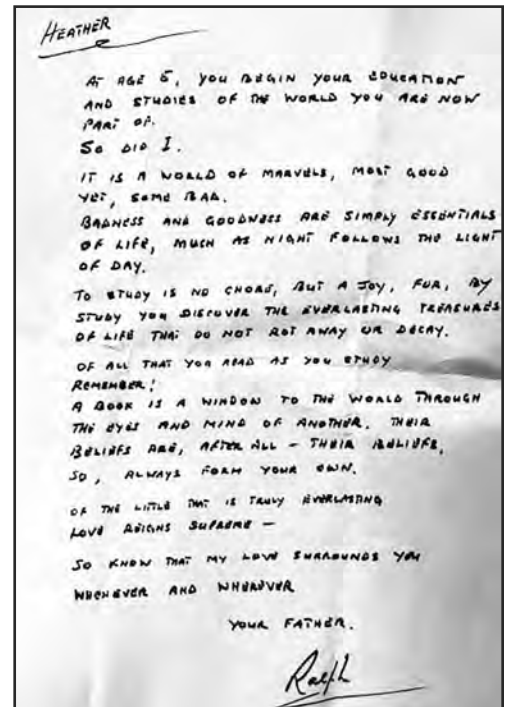 HEATHER
AT AGE 5, YOU BEGIN YOUR EDUCATION
AND STUDIES OF THE WORLD YOU ARE NOW
PART OF.
SO DID I.
IT IS A WORLD OF MARVELS, MOST GOOD
YET, SOME BAD.
BADNESS AND GOODNESS ARE SIMPLY ESSENTIALS
OF LIFE, MUCH AS NIGHT FOLLOWS THE LIGHT
OF DAY.
TO STUDY IS NO CHORE, BUT A JOY, FOR, BY
STUDY YOU DISCOVER THE EVERLASTING TREASURES
OF LIFE THAT DO NOT ROT AWAY OR DECAY.
OF ALL THAT YOU READ AS YOU STUDY
REMEMBER!
A BOOK IS A WINDOW TO THE WORLD THROUGH
THE EYES AND MIND OF ANOTHER. THEIR
BELIEFS ARE, AFTER ALL – THEIR BELIEFS,
SO, ALWAYS FORM YOUR OWN.
OF THE LITTLE THAT IS TRULY EVERLASTING
LOVE REIGNS SUPREME –
SO KNOW THAT MY LOVE SURROUNDS YOU
WHENEVER AND WHEREVER
YOUR FATHER.
Ralph